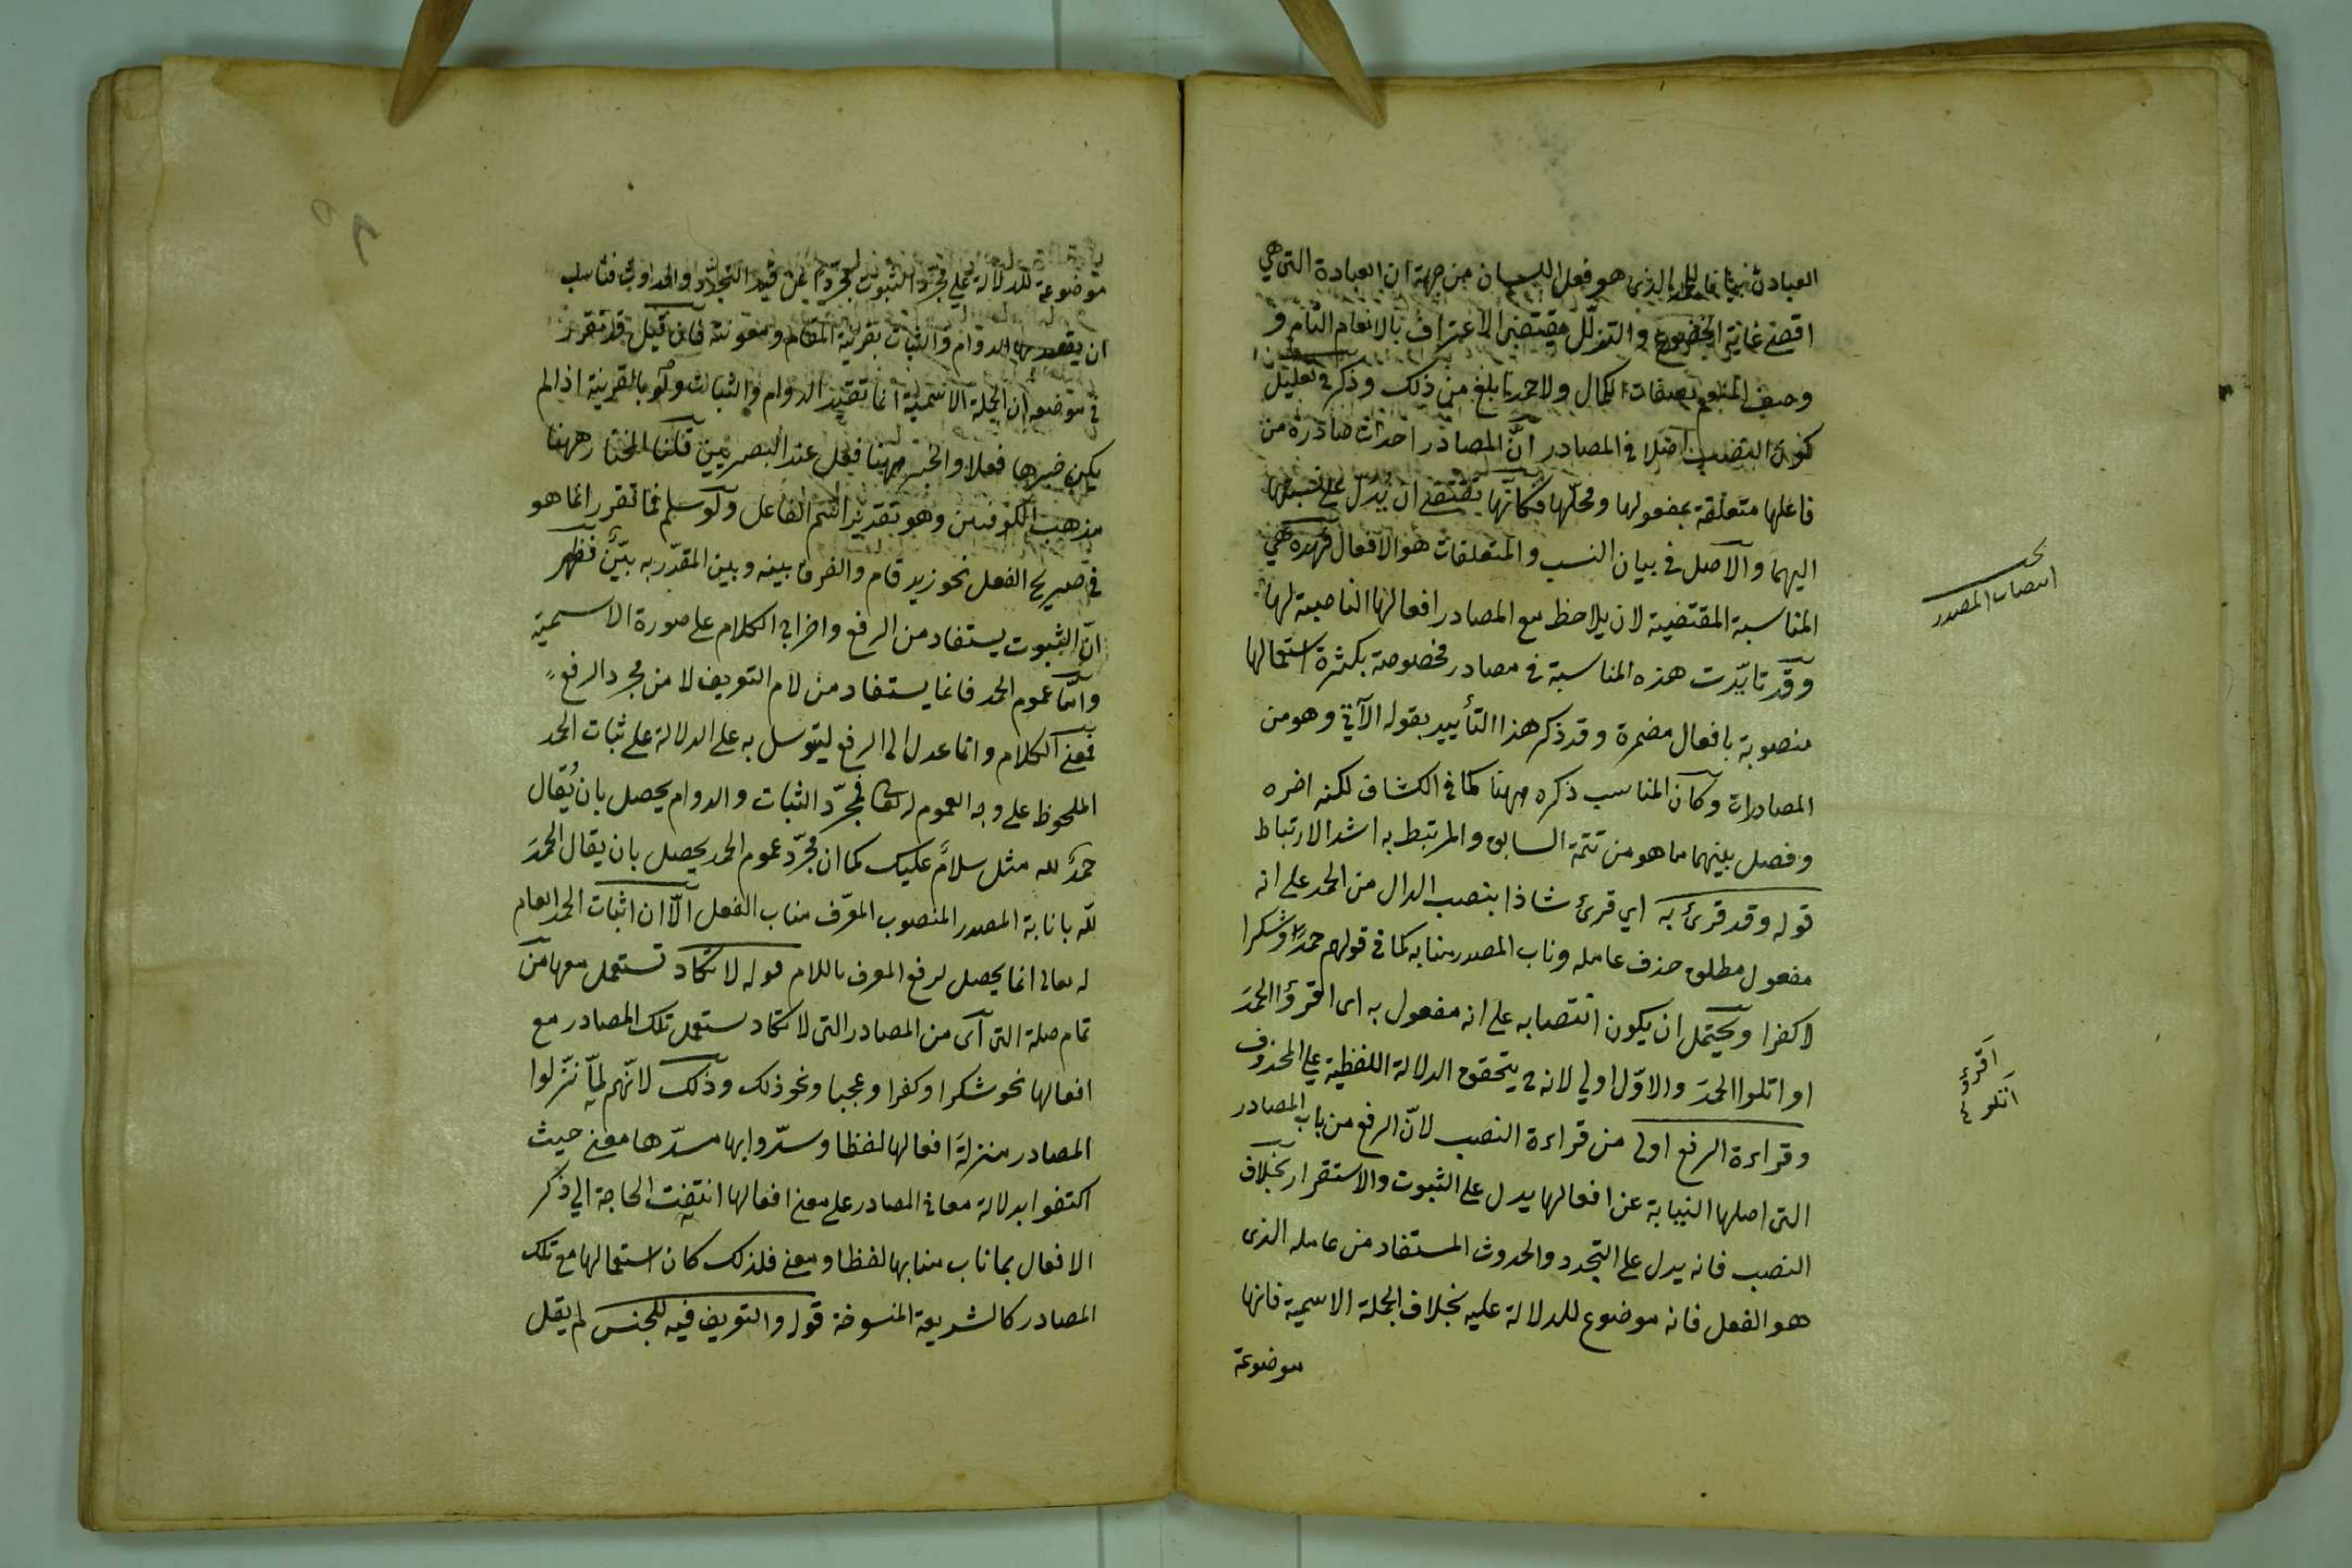 العبادة الذى هو فعل اللسان من جهة ان العبادة التى هي
اقصى غاية الخضوع والتذلل يقتضى الاعتراف بالانعام التام و
وصف المنعم بصفات الكمال ولاحمد ابلغ من ذلك وذكر في تعليل
كون النصب اصلا في المصادر انّ المصادر احداث صادرة من
فاعلها متعلقة بمفعولها ومحلّها فكانّها يقتضى ان يدل على نسبتها
اليهما والاصل في بيان النسب والمتعلقات هو الافعال فهذه هي
المناسبة المقتضية لان يلاحظ مع المصادر افعالها الناصبة لها
وقد تايّدت هذه المناسبة في مصادر مخصوصة بكثرة استعمالها
منصوبة بافعال مضمرة وقد ذكر هذا التأييد بقوله الآتي وهو من
المصادرات وكان المناسب ذكره ههنا كما في الكشاف لكنه اخره
وفصل بينهما مما هو من تتمة السابق والمرتبط به اشد الارتباط
قوله وقد قرئ به اي قرئ شاذا بنصب الدال من الحمد على انه
مفعول مطلق حذف عامله وناب المصدر منابه كما في قولهم حمدًا وشكرا
لا كفرا ويحتمل ان يكون انتصابه على انه مفعول به اى اقرؤا الحمدَ
او اتلوا الحمدَ والاوّل اولي لانه ح يتحقق الدلالة اللفظية على المحذوف
وقراءة الرفع اولى من قراءة النصب لانّ الرفع من باب المصادر
التى اصلها النيابة عن افعالها يدل على الثبوت والاستقرار بخلاف
النصب فانه يدل على التجدد والحدوث المستفاد من عامله الذى
هو الفعل فانه موضوع للدلالة عليه بخلاف الجملة الاسمية فانها
موضوعة
انتصاب المصدر
اقرؤ
اتلو
موضوعة للدلالة على مجرّد الثبوت مجرّدا عن قيد التجدّد والحدوث فناسب
ان يقصد بها الدوام والثبات بقرينة المقام ومعونته فان قيل قد تقرر
في موضعه ان الجملة الاسمية انما تفيد الدوام والثبات ولو بالقرينة اذا لم
يكن خبرها فعلا والخبر ههنا فعل عند البصريين قلنا المختار ههنا
مذهب الكوفيين وهو تقدير اسم الفاعل ولو سلم فما تقرر انما هو
في صريح الفعل نحو زيد قام والفرق بينه وبين المقدّر به بيّن فظهر
انّ الثبوت يستفاد من الرفع واخراج الكلام على صورة الاسمية
وامّا عموم الحمد فانما يستفاد من لام التعريف لا من مجرد الرفع
فمعنى الكلام وانما عدل الى الرفع ليتوسل به على الدلالة على ثبات الحمد
الملحوظ على وجه العموم له تعالى فمجرّد الثبات والدوام يحصل بان يُقال
حمدٌ لله مثل سلامٌ عليك كما ان مجرّد عموم الحمد يحصل بان يقال الحمدَ
لله بانابة المصدر المنصوب المعرّف مناب الفعل الّا ان اثبات الحمد العام
له تعالى انما يحصل لرفع المعرف باللام قوله لا تكاد تستعمل معها من
تمام صلة التى اى من المصادر التى لا تكاد ستعمل تلك المصادر مع
افعالها نحو شكرا وكفرا وعجبا ونحو ذلك وذلك لانّهم لمّا نزّلوا
المصادر منزلةَ افعالها لفظا وسدّوا بها مسدّها معنى حيث
اكتفوا بدلالة معانى المصادر على معنى افعالها انتفت الحاجة الي ذكر
الافعال بما ناب منابها لفظا ومعنى فلذلك كان استعمالها مع تلك
المصادر كالشريعة المنسوخة قوله والتعريف فيه للجنس لم يقل